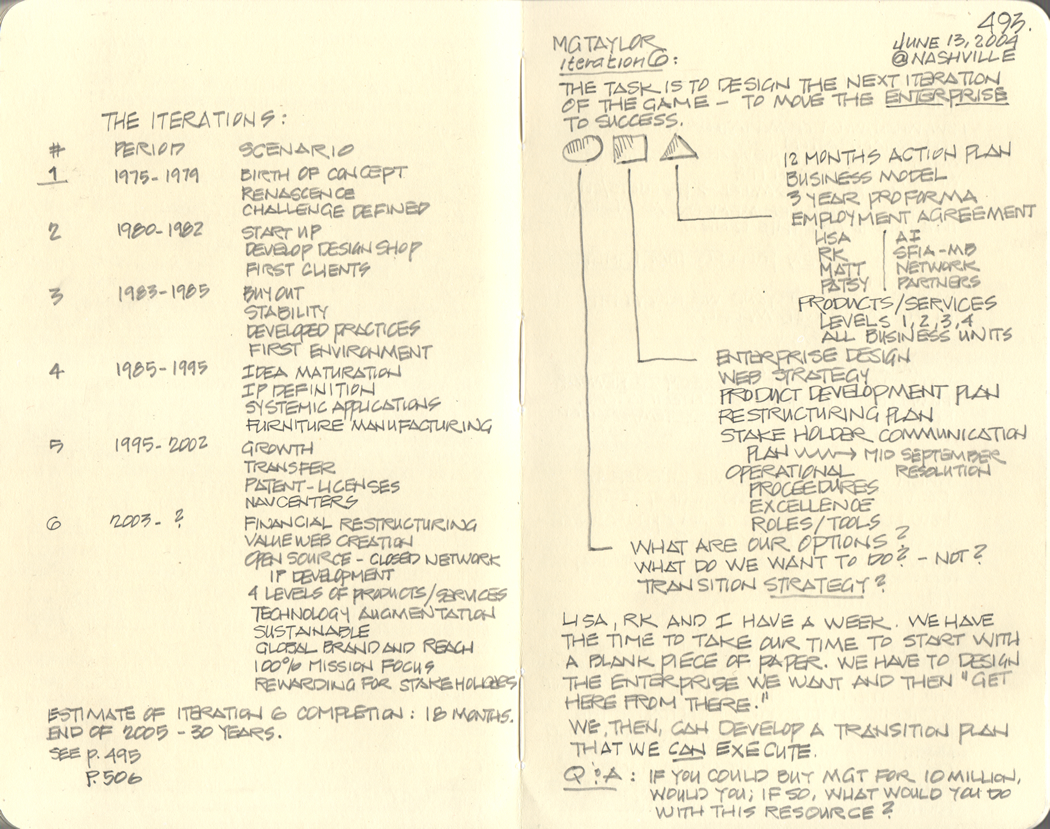 THE ITERATIONS:
# PERIOD SCENARIO
1 1975-1979 BIRTH OF CONCEPT
RENASCENCE
CHALLENGE DEFINED
2 1980-1982 START UP
DEVELOP DESIGN SHOP
FIRST CLIENTS
3 1983-1985 BUYOUT
STABILITY
DEVELOPED PRACTICES
FIRST ENVIRONMENT
4 1985-1995 IDEA MATURATION
IP DEFINITION
SYSTEMIC APPLICATIONS
FURNITURE MANUFACTURING
5 1995-2002 GROWTH
TRANSFER
PATENT-LICENSES
NAVCENTERS
6 2003-? FINANCIAL RESTRUCTURING
VALUE WEB CREATION
OPEN SOURCE - CLOSED NETWORK
IP DEVELOPMENT
4 LEVELS OF PRODUCTS/SERVICES
TECHNOLOGY AUGMENTATION
SUSTAINABLE
GLOBAL BRAND AND REACH
100% MISSION FOCUS
REWARDING FOR STAKEHOLDERS
ESTIMATE OF ITERATION 6 COMPLETION: 18 MONTHS.
END OF 2005 - 30 YEARS.
SEE P. 495
P. 506
493.
MG TAYLOR JUNE 13, 2004
iteration 6: @NASHVILLE
THE TASK IS TO DESIGN THE NEXT ITERATION
OF THE GAME - TO MOVE THE ENTERPRISE
TO SUCCESS.
12 MONTHS ACTION PLAN
BUSINESS MODEL
3 YEAR PROFORMA
EMPLOYMENT AGREEMENT
LISA AI
RK SFIA-MB
MATT NETWORK
PATSY PARTNERS
PRODUCTS/SERVICES
LEVELS 1, 2, 3, 4
ALL BUSINESS UNITS
ENTERPRISE DESIGN
WEB STRATEGY
PRODUCT DEVELOPMENT PLAN
RESTRUCTURING PLAN
STAKE HOLDER COMMUNICATION
PLAN → MID SEPTEMBER
OPERATIONAL RESOLUTION
PROCEEDURES
EXCELLENCE
ROLES/TOOLS
WHAT ARE OUR OPTIONS?
WHAT DO WE WANT TO DO? - NOT?
TRANSITION STRATEGY?
LISA, RK AND I HAVE A WEEK. WE HAVE
THE TIME TO TAKE OUR TIME TO START WITH
A BLANK PIECE OF PAPER. WE HAVE TO DESIGN
THE ENTERPRISE WE WANT AND THEN "GET
HERE FROM THERE."
WE, THEN, CAN DEVELOP A TRANSITION PLAN
THAT WE CAN EXECUTE.
Q & A: IF YOU COULD BUY MGT FOR 10 MILLION,
WOULD YOU; IF SO, WHAT WOULD YOU DO
WITH THIS RESOURCE?